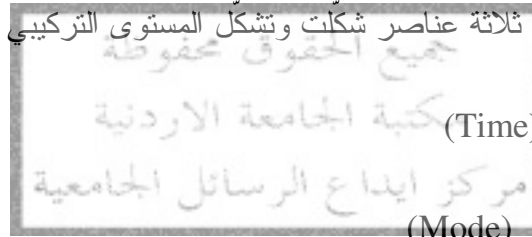 ثلاثة عناصر شكّلت وتشكّل المستوى التركيبي
جميع الحقوق محفوظة
مكتبة الجامعة الاردنية
(Time)
مركز ايداع الرسائل الجامعية
(Mode)